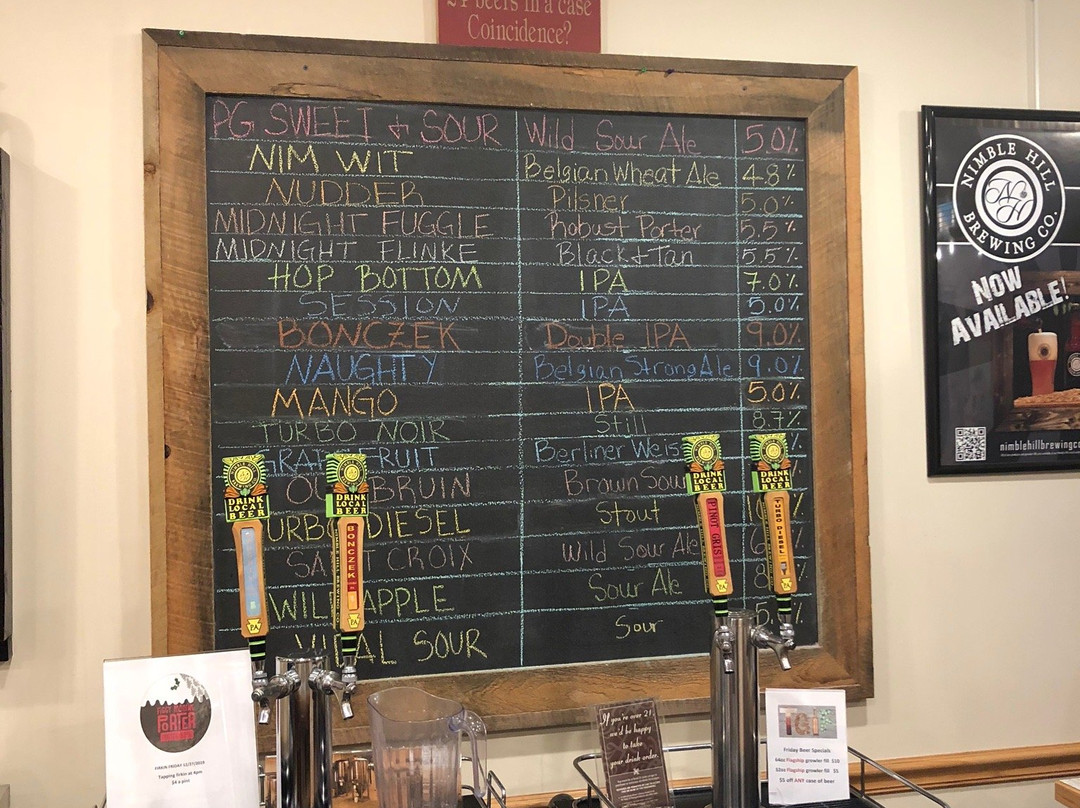 24 beers in a case
Coincidence?
PG SWEET & SOUR Wild Sour Ale 5.0%
NIM WIT Belgian Wheat Ale 4.8%
NUDDER Pilsner 5.0%
MIDNIGHT FUGGLE Robust Porter 5.5%
MIDNIGHT FLINKE Black & Tan 5.5%
HOP BOTTOM IPA 7.0%
SESSION IPA 5.0%
BONCZEK Double IPA 9.0%
NAUGHTY Belgian Strong Ale 9.0%
MANGO IPA 5.0%
TURBO NOIR Still 8.7%
GRAPEFRUIT Berliner Weiss %
BRUIN Brown Sour
TURBO DIESEL Stout %
SAINT CROIX Wild Sour Ale
WILD APPLE Sour Ale
SOUR Sour 5.
NIMBLE HILL
BREWING CO.
NH
NOW
AVAILABLE!
nimblehillbrewingco
DRINK
LOCAL
BEER
PA
DRINK
LOCAL
BEER
BONCZEK
NIMBLE HILL BREWING CO.
PA
DRINK
LOCAL
BEER
PINOT GRISLE
PA
DRINK
LOCAL
BEER
TURBO DIESEL
PA
PORTER
FIRKIN FRIDAY 12/27/2019
Tapping firkin at 4pm
$4 a pint
If you're over 21,
we'd be happy
to take
your drink order.
Friday Beer Specials
64oz Flagship growler fill $10
32oz Flagship growler fill $5
$5 off ANY case of beer